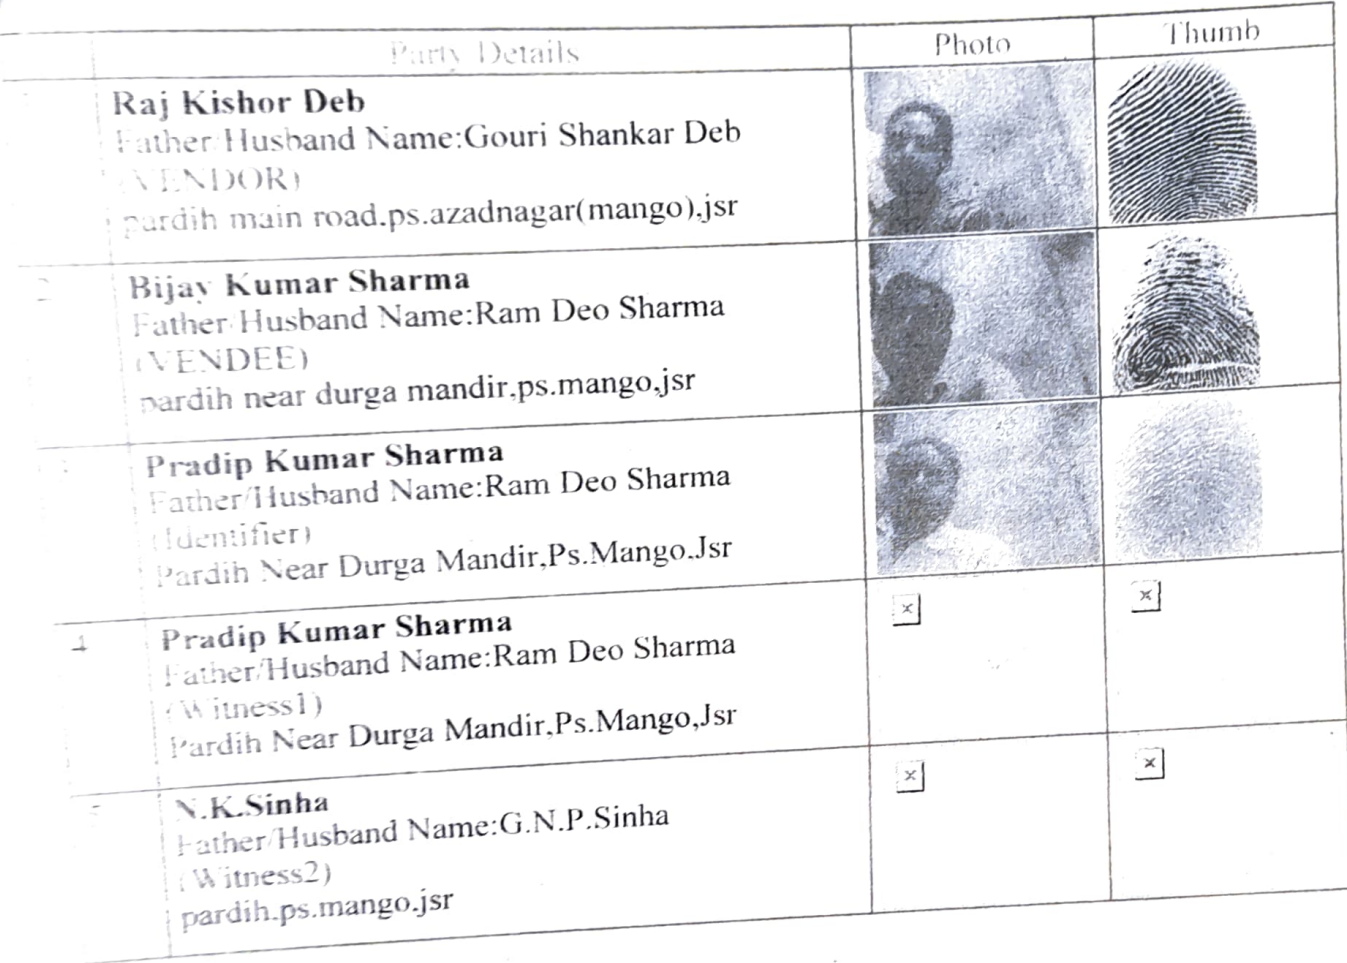 Party Details Photo Thumb
Raj Kishor Deb
Father/Husband Name:Gouri Shankar Deb
(VENDOR)
pardih main road.ps.azadnagar(mango),jsr
2
Bijay Kumar Sharma
Father/Husband Name:Ram Deo Sharma
(VENDEE)
pardih near durga mandir,ps.mango,jsr
Pradip Kumar Sharma
Father/Husband Name:Ram Deo Sharma
(Identifier)
Pardih Near Durga Mandir,Ps.Mango.Jsr
4
Pradip Kumar Sharma
Father/Husband Name:Ram Deo Sharma
(Witness1)
Pardih Near Durga Mandir,Ps.Mango,Jsr
N.K.Sinha
Father/Husband Name:G.N.P.Sinha
(Witness2)
pardih.ps.mango.jsr